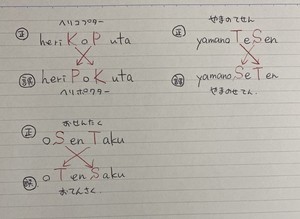 ヘリコプター
正 heriKoPuta
誤 heriPoKuta
ヘリポクター
やまのてせん
正 yamanoTeSen
誤 yamanoSeTen
やまのせてん
おせんたく
正 oSenTaku
誤 oTenSaku
おてんさく